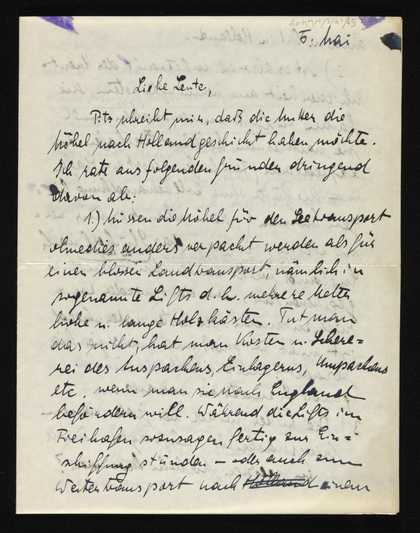 5. Mai
Liebe Leute,
Pits schreibt mir, daß die Mutter die
Möbel nach Holland geschickt haben möchte.
Ich rate aus folgenden Gründen dringend
davon ab:
1.) müssen die Möbel für den Seetransport
ohnedies anders verpackt werden als für
einen blossen Landtransport, nämlich in
sogenannte Lifts d.h. mehrere Meter
hohe u. lange Holzkästen. Tut man
das nicht, hat man Kosten u. Schere=
rei des Auspackens, Einlagerns, Umpackens
etc. wenn man sie nach England
befördern will. Während die Lifts im
Freihafen sozusagen fertig zur Ein=
schiffung stünden – oder auch zum
Weitertransport nach Holland einem